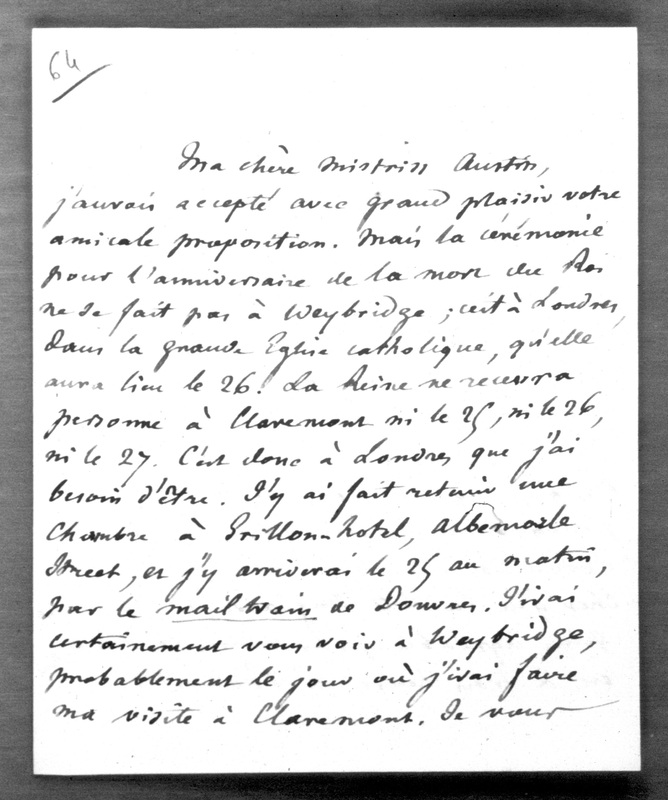 64
Ma chère Mistriss Austin,
j'aurais accepté avec grand plaisir votre
amicale proposition. Mais la cérémonie
pour l'anniversaire de la mort du Roi
ne se fait pas à Weybridge ; c'est à Londres,
dans la grande Eglise catholique, qu'elle
aura lieu le 26. La Reine ne recevra
personne à Claremont ni le 25, ni le 26,
ni le 27. C'est donc à Londres que j'ai
besoin d'être. J'y ai fait retenir une
chambre à Grillon-hotel, Albemarle
Street, et j'y arriverai le 25 au matin,
par le mail train de Douvres. J'irai
certainement vous voir à Weybridge,
probablement le jour où j'irai faire
ma visite à Claremont. Je vous